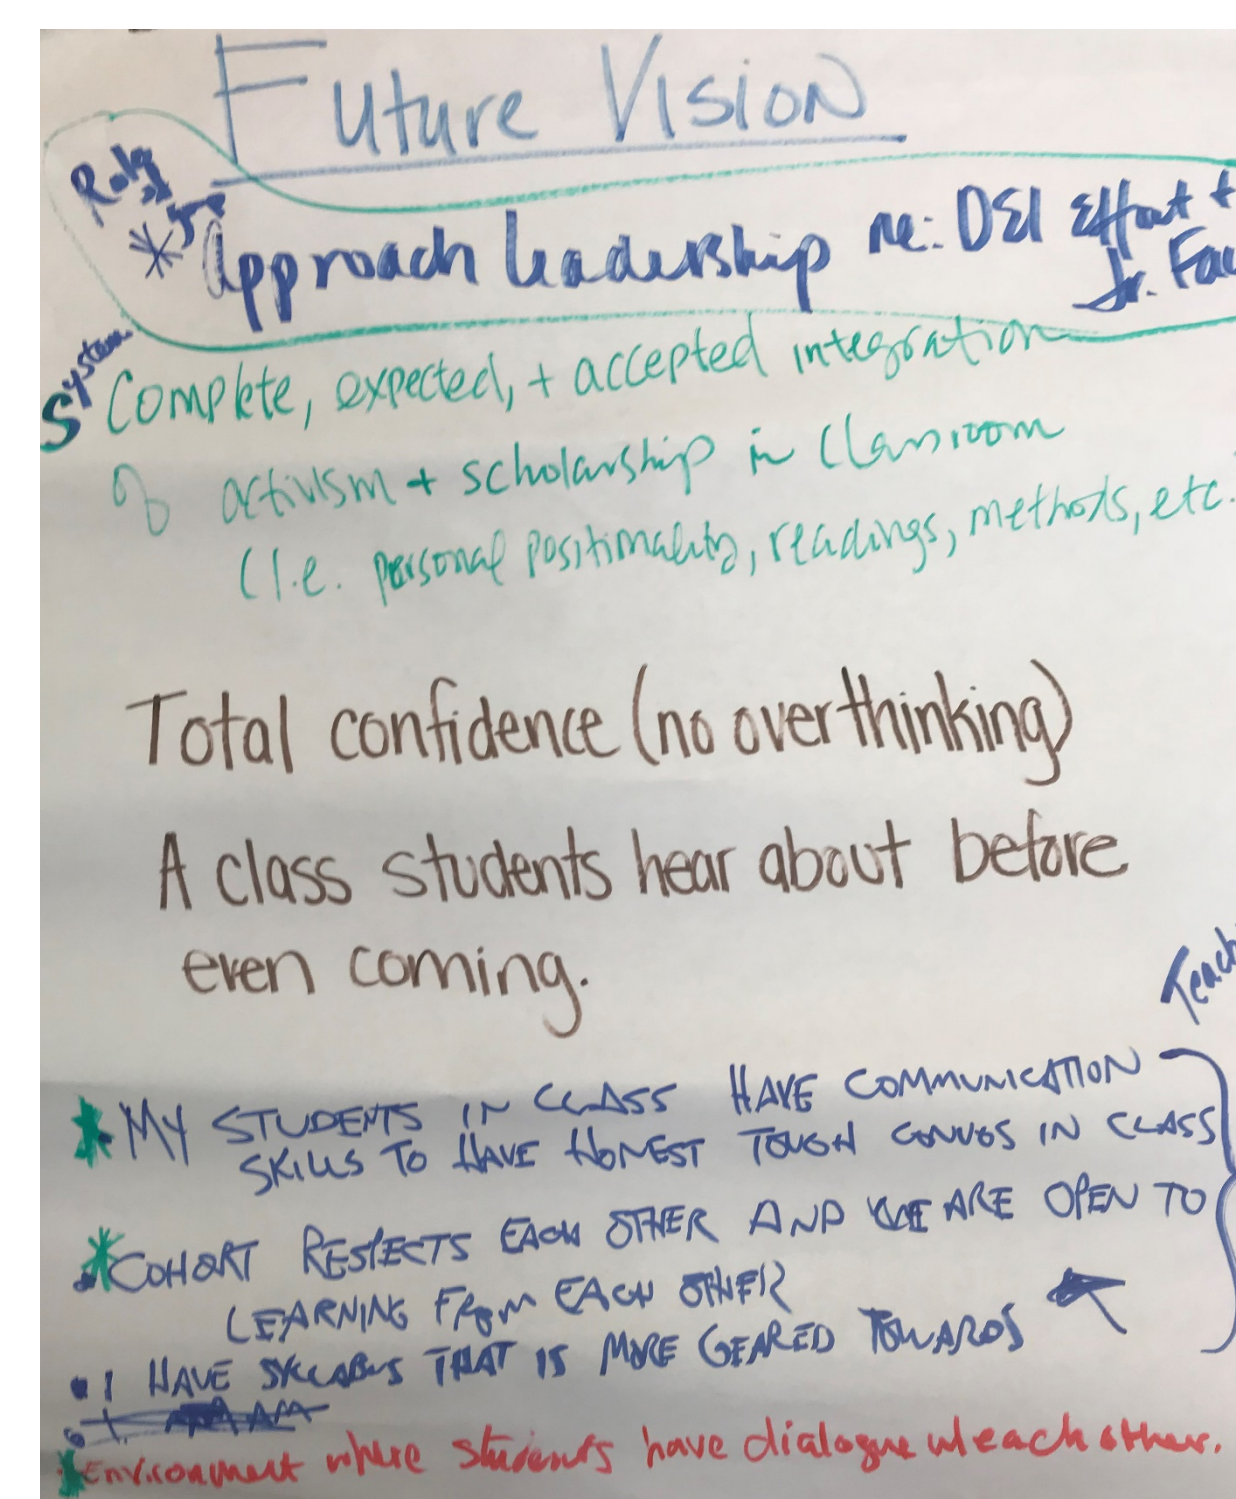 Future Vision
* Approach leadership re: DEI Effort +
Jr. Fac
System
Complete, expected, + accepted integration
of activism + scholarship in classroom
(I.e. personal positionality, readings, methods, etc.
Total confidence (no overthinking)
A class students hear about before
even coming.
Teach
* MY STUDENTS IN CLASS HAVE COMMUNICATION
SKILLS TO HAVE HONEST TOUGH CONVOS IN CLASS
* COHORT RESPECTS EACH OTHER AND WE ARE OPEN TO
LEARNING FROM EACH OTHER
• I HAVE SYLLABUS THAT IS MORE GEARED TOWARDS
* Environment where students have dialogue w/each other.